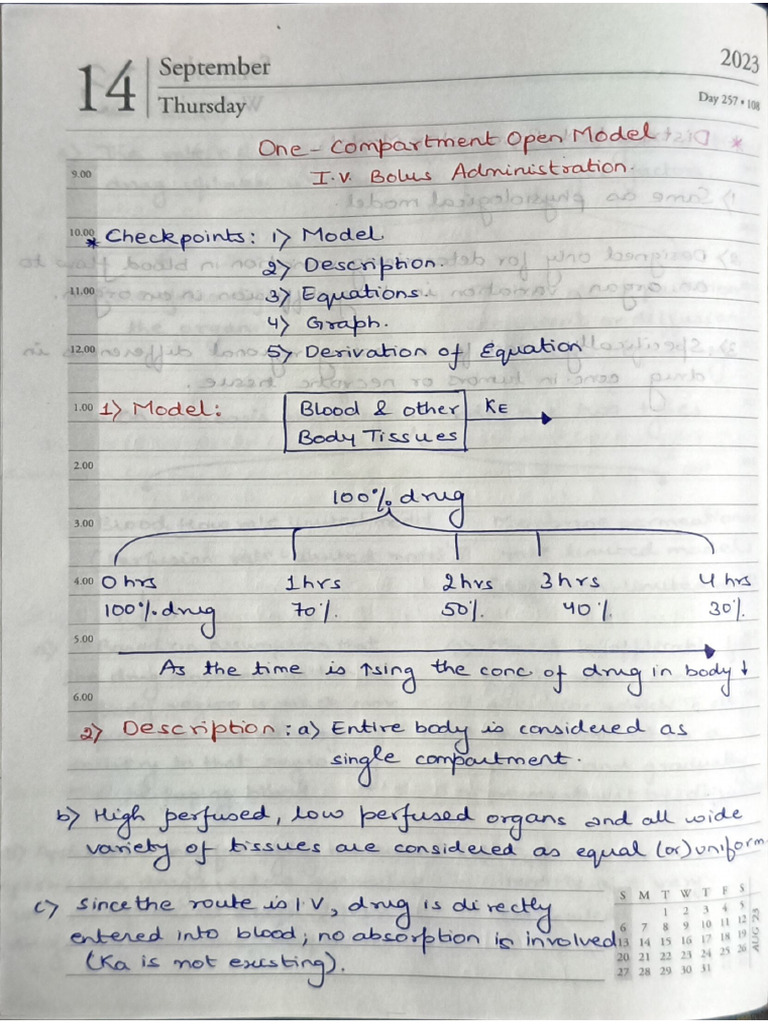 14 September 2023
Thursday Day 257 • 108
One-Compartment Open Model
9.00 I.V. Bolus Administration.
10.00 * Checkpoints: 1) Model
2) Description.
11.00 3) Equations.
4) Graph.
12.00 5) Derivation of Equation
1.00 1) Model: Blood & other KE
Body Tissues
2.00
100% drug
3.00
4.00 0 hrs 1 hrs 2 hrs 3 hrs 4 hrs
100% drug 70% 50% 40% 30%
5.00
As the time is ↑sing the conc. of drug in body ↓
6.00
2) Description: a) Entire body is considered as
single compartment.
b) High perfused, low perfused organs and all wide
variety of tissues are considered as equal (or) uniform
c) Since the route is I.V, drug is directly
entered into blood; no absorption is involved
(Ka is not existing).
S M T W T F S
1 2 3 4 5
6 7 8 9 10 11 12
13 14 15 16 17 18 19
20 21 22 23 24 25 26
27 28 29 30 31
AUG '23